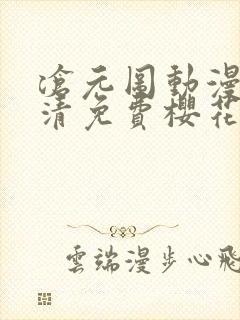 滄元圖動漫
清免費櫻花
雲端漫步心飛